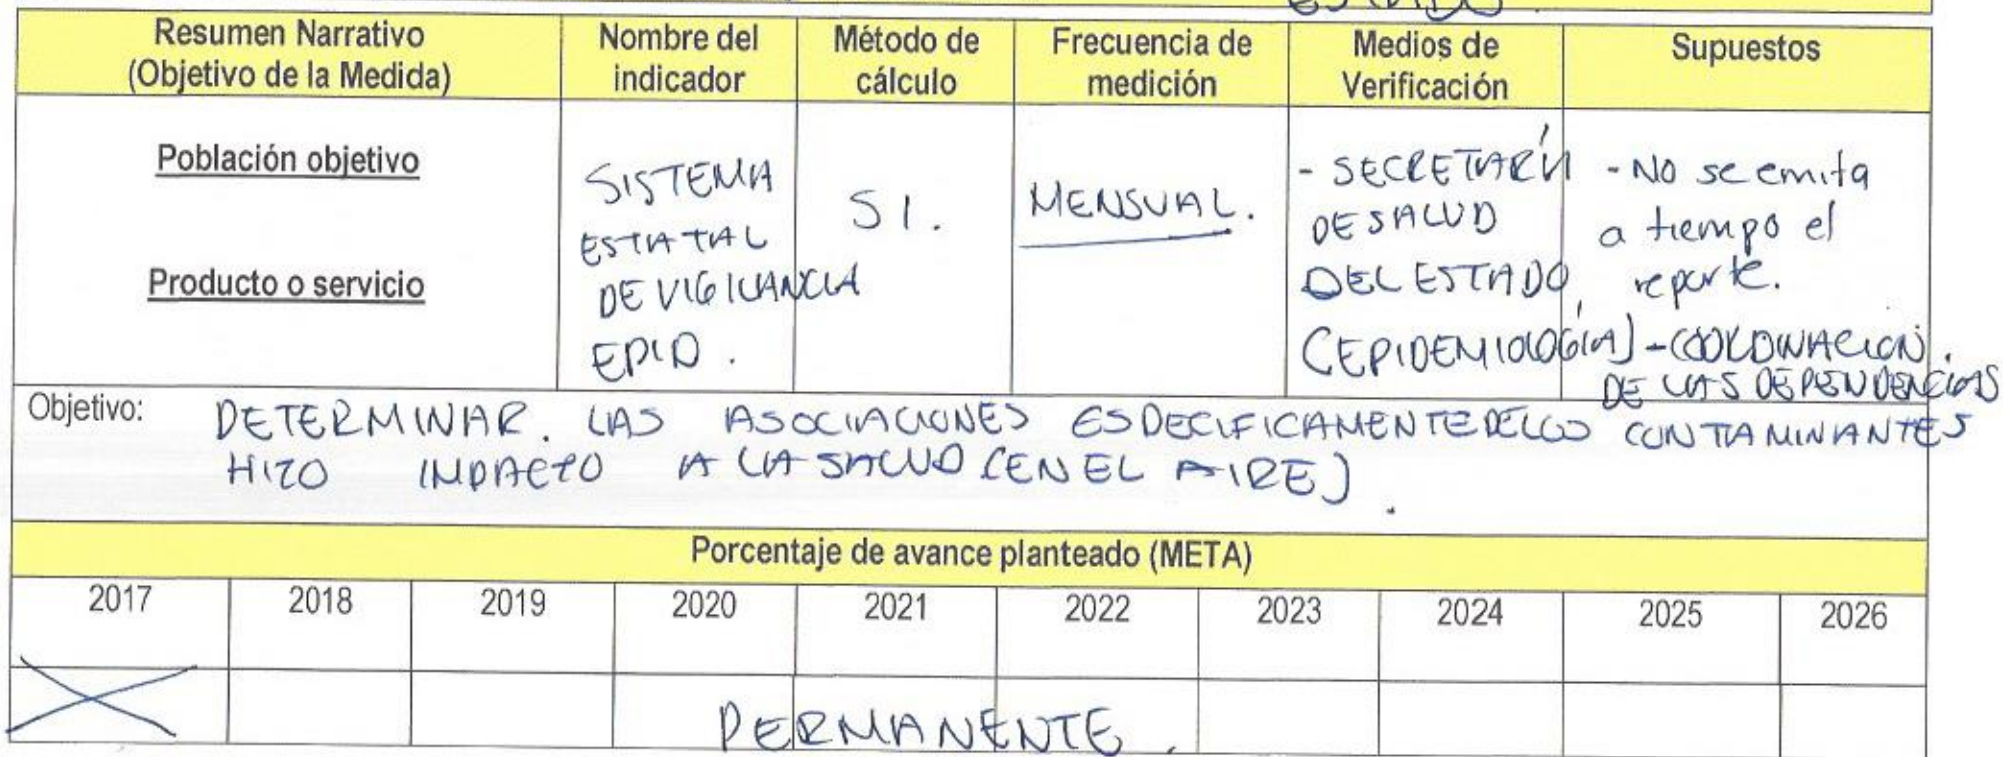 ESTADO.
Resumen Narrativo
(Objetivo de la Medida)
Nombre del
indicador
Método de
cálculo
Frecuencia de
medición
Medios de
Verificación
Supuestos
Población objetivo
Producto o servicio
SISTEMA
ESTATAL
DE VIGILANCIA
EPID.
SI.
MENSUAL.
- SECRETARÍA
DE SALUD
DEL ESTADO
(EPIDEMIOLOGÍA)
- No se emita
a tiempo el
reporte.
- COORDINACION.
DE LAS DEPENDENCIAS
Objetivo: DETERMINAR. LAS ASOCIACIONES ESPECIFICAMENTE DE LOS CONTAMINANTES
HIZO IMPACTO A LA SALUD (EN EL AIRE).
Porcentaje de avance planteado (META)
2017 2018 2019 2020 2021 2022 2023 2024 2025 2026
PERMANENTE.